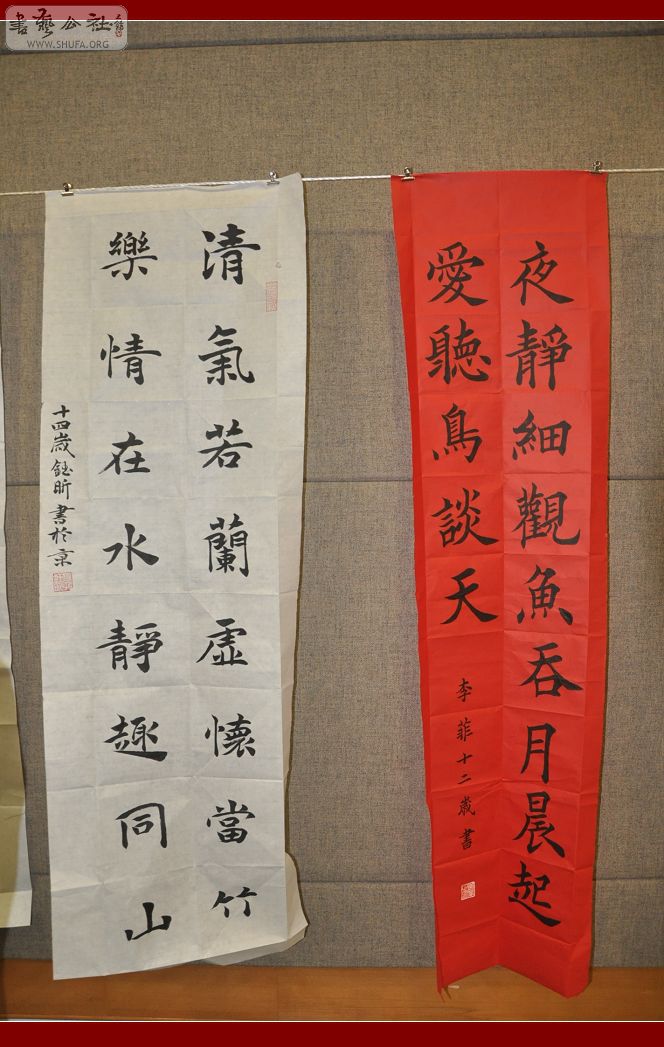 書藝公社
WWW.SHUFA.ORG
夜靜細觀魚吞月晨起
愛聽鳥談天
李菲十二歲書
清氣若蘭虛懷當竹
樂情在水靜趣同山
十四歲鈺昕書於京